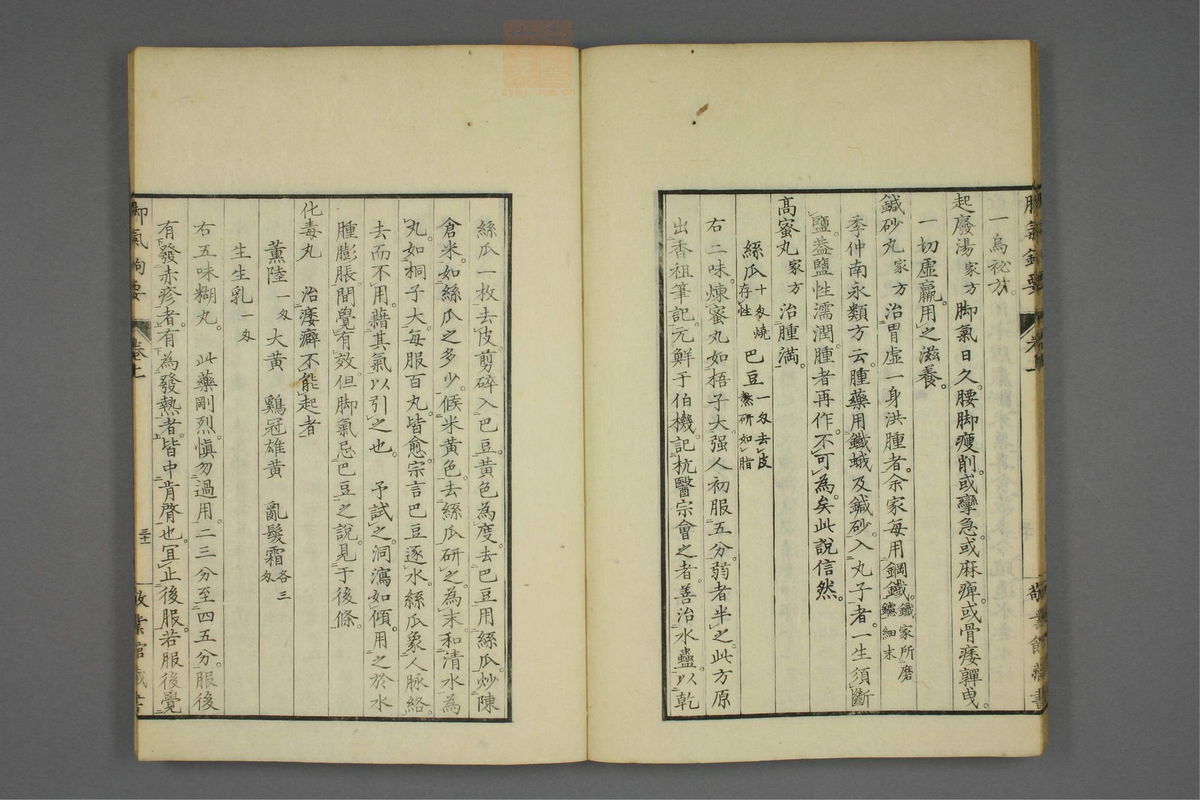 一烏秘方。
起廢湯 家方 脚氣日久。腰脚瘦削。或攣急。或麻痺。或骨痿嚲曳。
一切虛羸。用之滋養。
鍼砂丸 家方 治胃虛一身洪腫者。余家每用鋼鐵。鐵家所磨鑢細末
李仲南永類方云。腫藥用鐵蛾及鍼砂。入丸子者。一生須斷
鹽。蓋鹽性濡潤。腫者再作。不可為矣。此說信然。
高密丸 家方 治腫滿。
絲瓜 十匁燒存性 巴豆 一匁去皮熬研如脂
右二味。煉蜜丸。如梧子大。强人初服五分。弱者半之。此方原
出香祖筆記。元鮮于伯機。記杭醫宗會之者。善治水蠱。以乾
絲瓜一枚。去皮剪碎。入巴豆黃色為度。去巴豆用絲瓜炒陳
倉米。如絲瓜之多少。候米黃色。去絲瓜研之。為末。和清水為
丸。如桐子大。每服百丸。皆愈。宗言巴豆逐水。絲瓜象人脉絡。
去而不用。藉其氣以引之也。 予試之。洞瀉如傾。用之於水
腫膨脹。間覺有效。但脚氣忌巴豆之說。見于後條。
化毒丸 治痿癖不能起者
薰陸 一匁 大黃 鷄冠雄黃 亂髮霜 各三匁
生生乳 一匁
右五味糊丸。 此藥剛烈。愼勿過用。二三分至四五分。服後
有發赤疹者。有為發熱者。皆中肯綮也。宜止後服。若服後覺
卷上